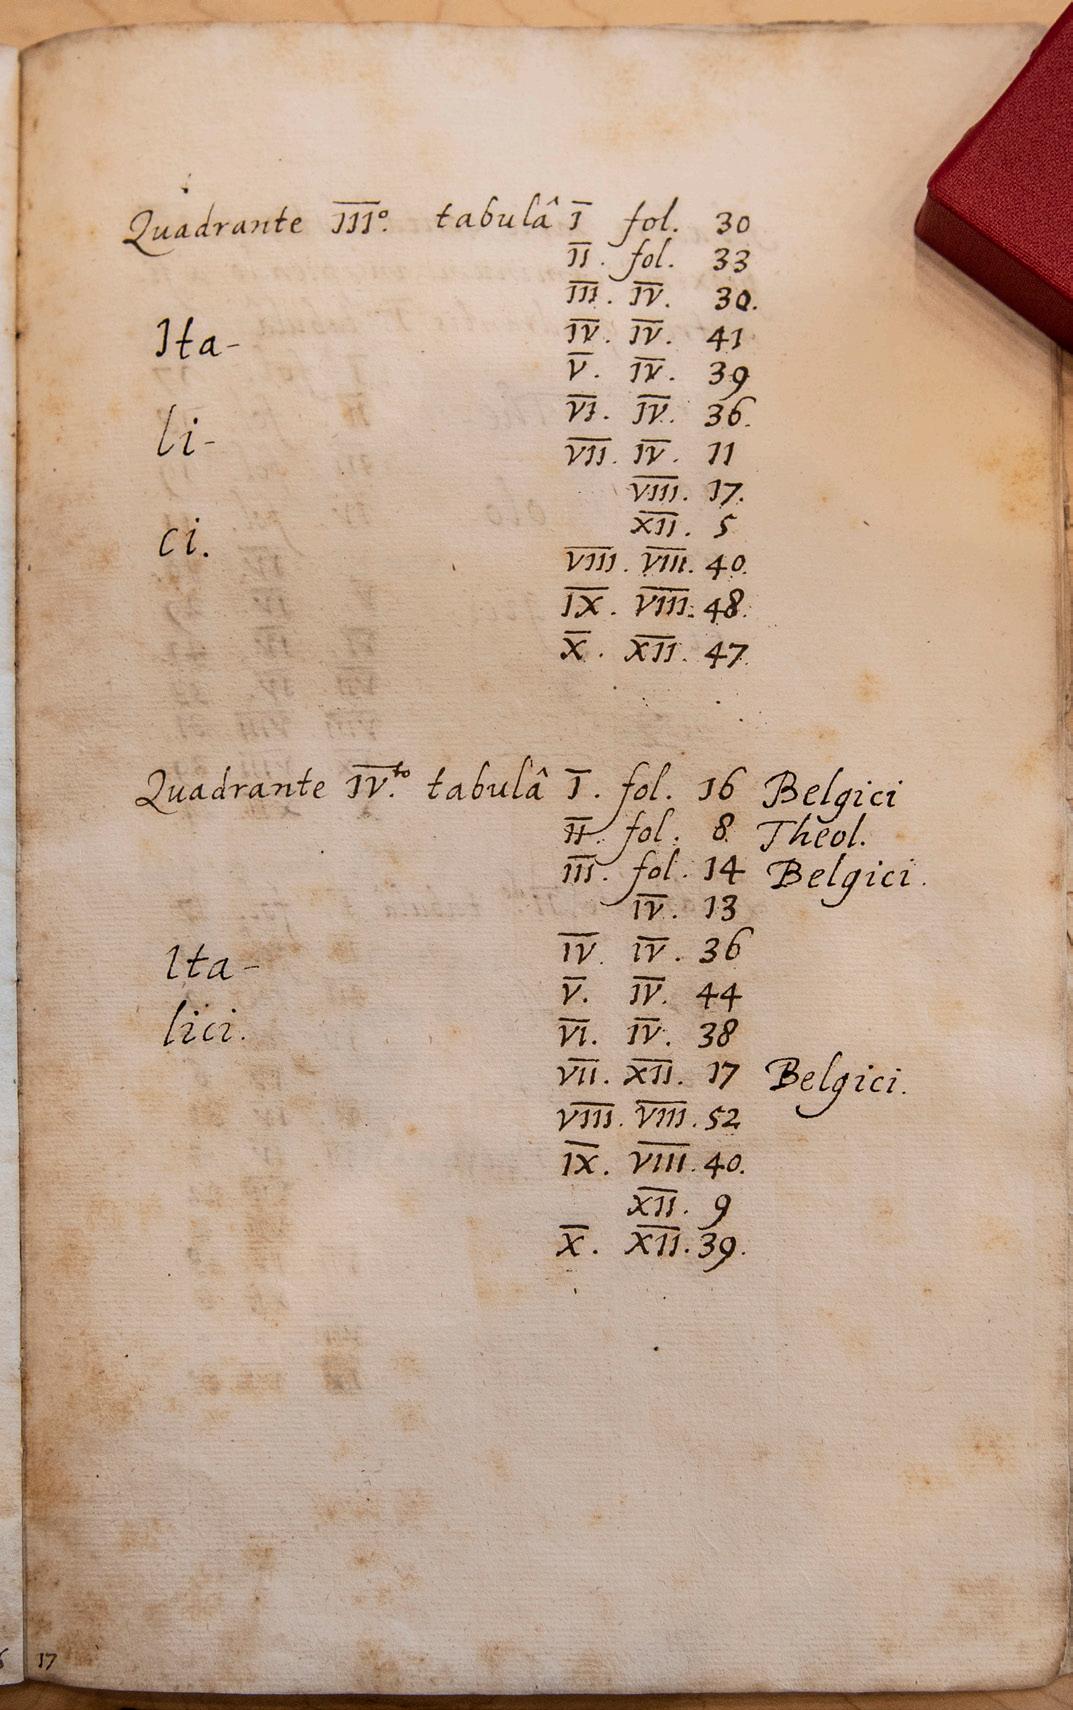 Quadrante III°. tabulâ I fol. 30
II. fol. 33
III. IV. 30.
Ita- IV. IV. 41
V. IV. 39
li- VI. IV. 36.
VII. IV. 11
VIII. 17.
ci. XII. 5
VIII. VIII. 40.
IX. VIII. 48.
X. XII. 47.
Quadrante IV.to tabulâ I. fol. 16 Belgici
II. fol. 8. Theol.
III. fol. 14 Belgici.
IV. 13
Ita- IV. IV. 36
V. IV. 44
lici. VI. IV. 38
VII. XII. 17 Belgici.
VIII. VIII. 52
IX. VIII. 40.
XII. 9
X. XII. 39.
17